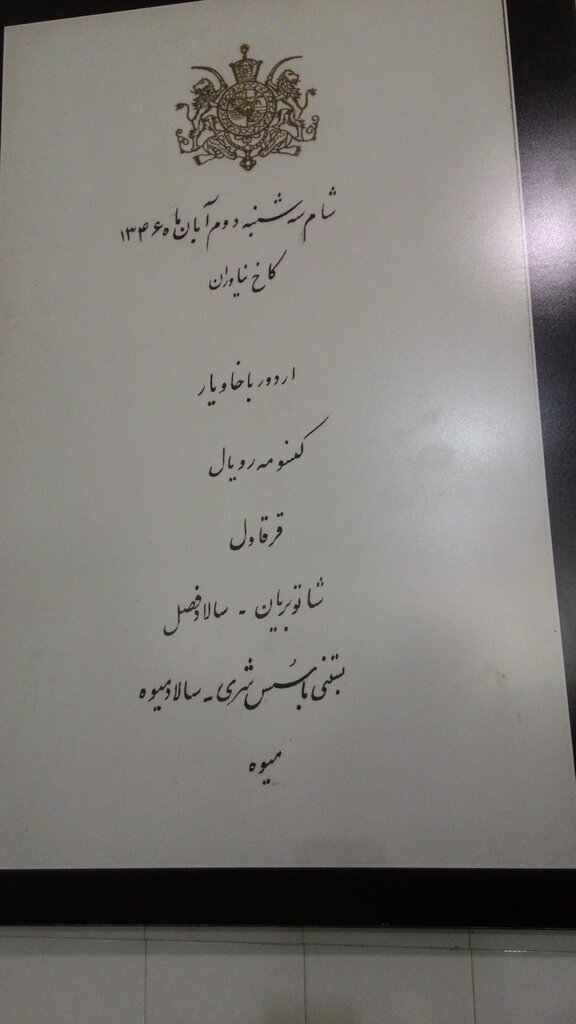 شام سه شنبه دوم آبان ماه ۱۳۴۶
کاخ نیاوران
اردور با خاویار
کنسومه رویال
قرقاول
شاتوبریان - سالاد فصل
بستنی با سُس شری - سالاد میوه
میوه